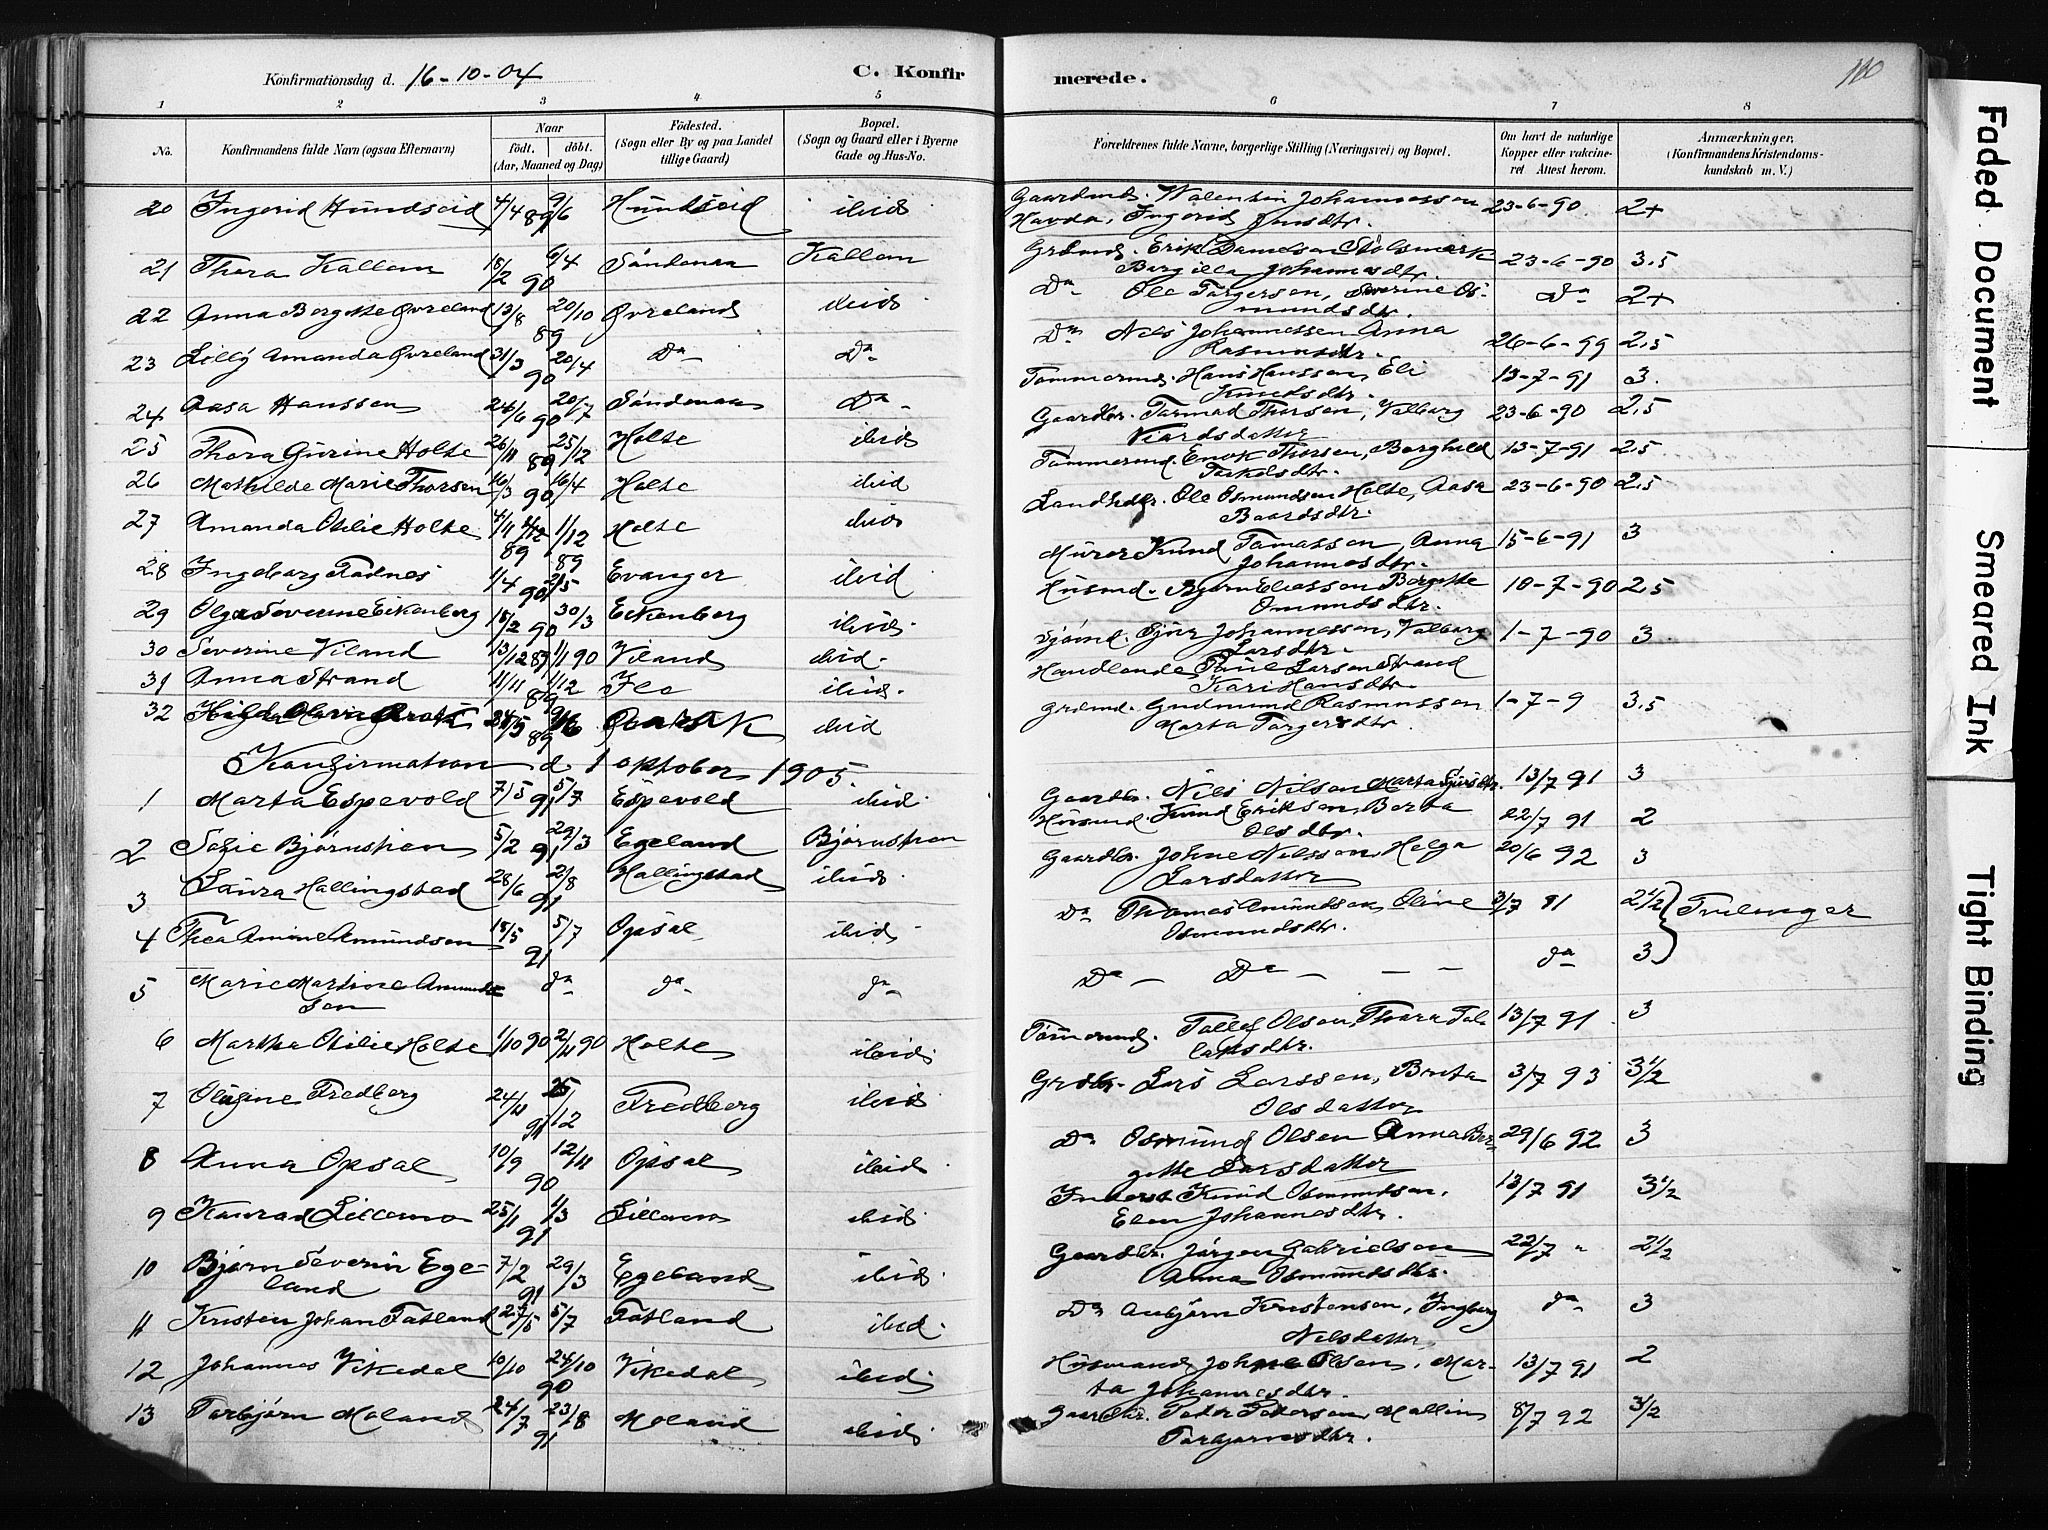 Konfirmationsdag d. 16-10-04 C. Konfirmerede. 110
1 2 3 4 5 6 7 8
No. Konfirmandens fulde Navn (ogsaa Efternavn) Naar født. døbt. (Aar, Maaned og Dag) Fødested. (Sogn eller By og paa Landet tillige Gaard) Bopæl. (Sogn og Gaard eller i Byerne Gade og Hus-No. Forældrenes fulde Navne, borgerlige Stilling (Næringsvei) og Bopæl. Om havt de naturlige Kopper eller vakcineret Attest herom. Anmærkninger, (Konfirmandens Kristendomskundskab m. V.)
20 Ingerid Hundseid 4/4 89 9/6 Hundseid ibid Gaardmd. Valentin Johannessen 23-6-90 2+
Havda, Ingerid Jonsdtr.
21 Thora Kallem 18/2 90 6/4 Søndenaa Kallem Grdmd. Erik Danielsen Stølsmark 23-6-90 3,5
Borgilla Johannesdtr.
22 Anna Bergitte Øvreland 13/8 89 20/10 Øvreland ibid Da Ole Torgersen, Severine Os- Da 2+
mundsdtr.
23 Lolly Amanda Øvreland 31/3 90 20/4 Da Da Da Nils Johannessen Anna 26-6-99 2,5
Rasmusdtr.
24 Aasa Hanssen 24/6 90 20/7 Søndenaa Da Tømmermd. Hans Hanssen, Eli 13-7-91 3.
Knudsdtr.
25 Thora Gurine Holte 26/11 89 25/12 Holte ibid Gaardbr. Tormod Thorsen, Valborg 23-6-90 2,5
26 Mathilde Marie Thorsen 16/3 90 16/4 Holte ibid Tømmermd. Enok Thorsen, Borghild 13-7-91 2,5
Torkelsdtr.
27 Amanda Otilie Holte 4/11 89 1/12 89 Holte ibid Landhdlr. Ole Osmundsen Holte, Aasa 23-6-90 2,5
Baardsdtr.
28 Ingeborg Fadnes 1/4 90 2/5 Evanger ibid Murer Knud Tomassen, Anna 15-6-91 3
Johannesdtr.
29 Olga Severine Eikenberg 18/2 90 30/3 Eikenberg ibid Husmd. Bjørn Eliassen Bergitte 10-7-90 2,5
Omundsdtr.
30 Severine Viland 13/12 89 1/1 90 Viland ibid Sjømd. Sjur Johannessen, Valborg 1-7-90 3
Larsdtr.
31 Anna Strand 11/11 89 1/12 Ile ibid Handlende Poul Larsen Strand
Kari Hansdtr.
32 ibid Grdmd. Gudmund Rasmussen 1-7-9 3,5
Marta Torgersdtr.
Konfirmation d. 1 oktober 1905.
1 Marta Espevold 7/5 91 5/7 Espevold ibid Gaardbr. Nils Nilsen Marta Sjursdtr. 13/7 91 3
2 Sofie Bjørnstien 5/2 91 29/3 Egeland Bjørnstien Husmd. Knud Eriksen, Berta 22/7 91 2
Olsdtr.
3 Laura Hallingstad 28/6 91 2/8 Hallingstad ibid Gaardbr. Johne Nilssen, Helga 20/6 92 3
Larsdatter
4 Thea Amine Amundsen 18/5 91 5/7 Opsal ibid Da Thomas Amundsen, Oline 3/7 91 2 1/2 Tvilinger
Osmundsdtr.
5 Marie Martine Amund- da da da Da Da da 3
sen
6 Martha Otilie Holte 1/10 90 2/11 90 Holte ibid Tømmermd. Tollef Olsen, Thora Tol- 13/7 91 3
lefsdtr.
7 Olugine Fredberg 24/11 91 25/12 Fredberg ibid Grdbr. Lars Larssen, Brita 3/7 93 3 1/2
Olsdatter
8 Anna Opsal 10/9 90 12/11 Opsal ibid Da Osmund Olsen Anna Ber- 29/6 92 3
gitte Larsdatter
9 Konrad Lillemo 25/1 91 1/3 Lillemo ibid Inderst Knud Osmundsen, 13/7 91 3 1/2
Elen Johannesdtr.
10 Bjørn Severin Ege- 7/2 91 29/3 Egeland ibid Gaardbr. Jørgen Gabrielsen 22/7 " 2 1/2
land Anna Osmundsdtr.
11 Kristen Johan Fatland 27/5 5/7 Fatland ibid Da Aubjørn Kristensen, Ingborg da 3
Nilsdatter
12 Johannes Vikedal 10/10 90 24/10 Vikedal ibid Husmand, Johne Olsen, Mar- 13/7 91 2
ta Johannesdtr.
13 Torbjørn Moland 24/7 91 23/8 Moland ibid Gaardbr. Peder Pedersen, Mallin 8/7 92 3 1/2
Torbjørnsdtr.
Faded Document
Smeared Ink
Tight Binding